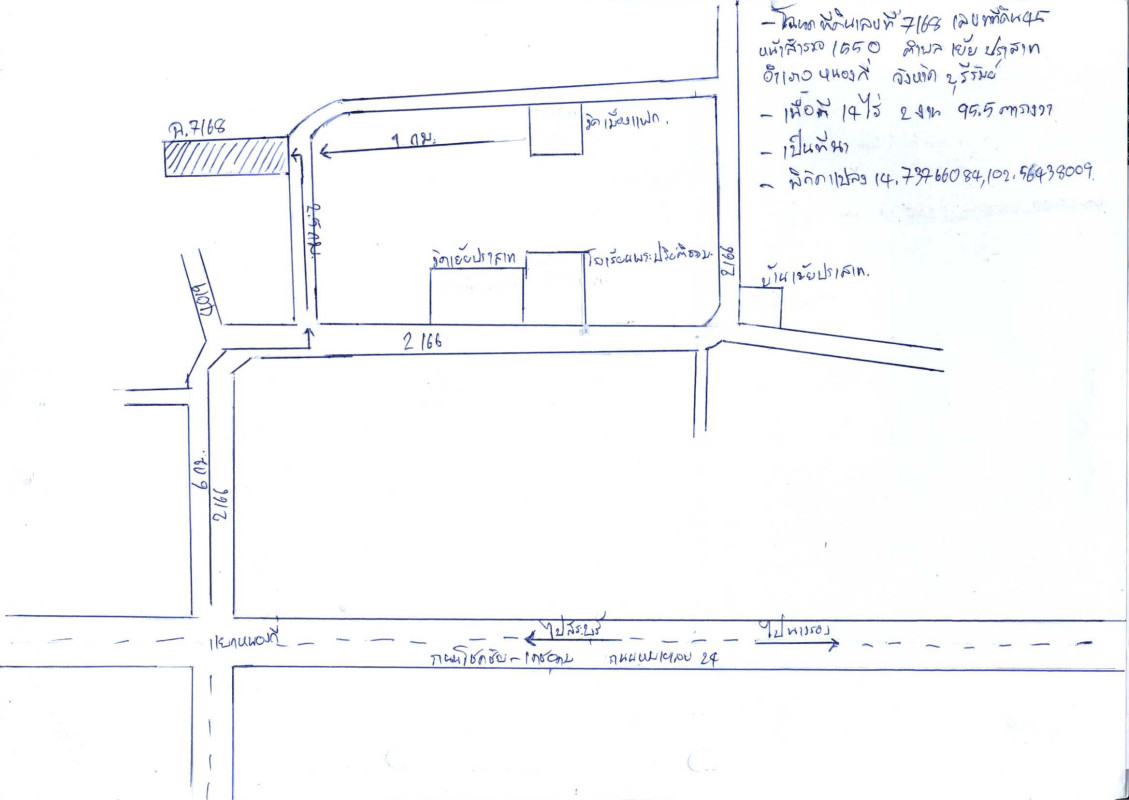 - โฉนดที่ดินเลขที่ 7168 เลขที่ดิน 45
หน้าสำรวจ 1550 ตำบล เย้ย ปราสาท
อำเภอ หนองกี่ จังหวัด บุรีรัมย์
- เนื้อที่ 14 ไร่ 2 งาน 95.5 ตารางวา
- เป็นที่นา
- พิกัดแปลง 14.73766084,102.56438009
ฉ.7168
วัดเมืองแฝก.
1 กม.
2.5 กม.
วัดเย้ยปราสาท
โรงเรียนพระปริยัติธรรม.
2166
บ้านเย้ยปราสาท.
2166
6 กม.
2166
แยกหนองกี่
ไปสระบุรี
ไปนางรอง
ถนนโชคชัย-เดชอุดม ถนนหมายเลข 24